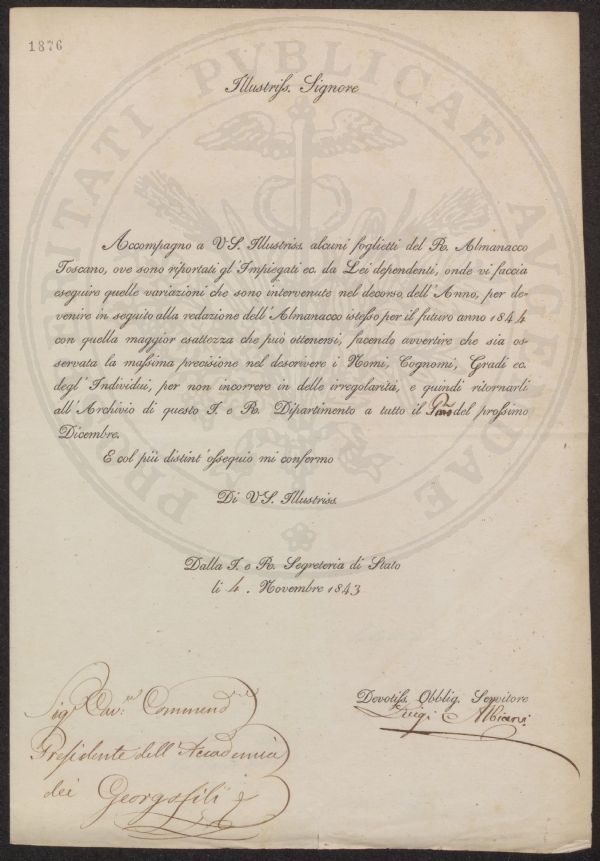 1876
PROSPERITATI PVBLICAE AVGENDAE
Illustriſs. Signore
Accompagno a V.S. Illustriss. alcuni foglietti del R. Almanacco
Toscano, ove sono riportati gl'Impiegati ec. da Lei dependenti, onde vi faccia
eseguire quelle variazioni che sono intervenute nel decorso dell'Anno, per de-
venire in seguito alla redazione dell'Almanacco istesſo per il futuro anno 1844
con quella maggior esattezza che può ottenersi, facendo avvertire che sia os-
servata la masſima precisione nel descrivere i Nomi, Cognomi, Gradi ec.
degl'Individui, per non incorrere in delle irregolarità, e quindi ritornarli
all'Archivio di questo I. e R. Dipartimento a tutto il Pmo del prosſimo
Dicembre.
E col più distint'osſequio mi confermo
Di V.S. Illustriss.
Dalla I. e R. Segreteria di Stato
li 4. Novembre 1843
Devotiſs. Obblig. Servitore
Luigi Albiani
Sigr Cavre Commendre
Preſidente dell'Accademia
dei Georgofili